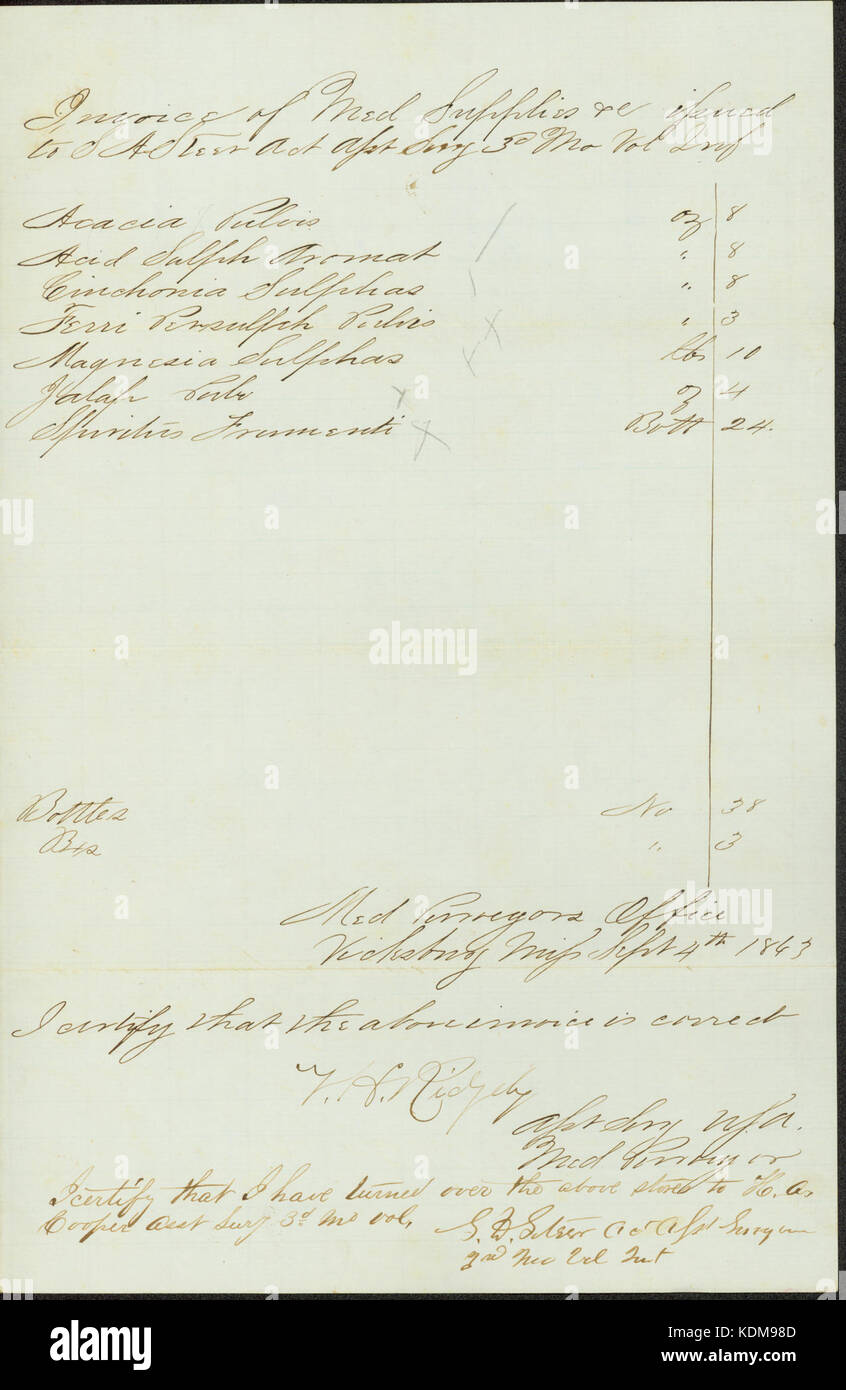 Invoice of Med Supplies &c issued
to S A Steer Act Asst Surg 3d Mo Vol Inf
Acacia Pulvis oz 8
Acid Sulph Aromat " 8
Cinchonia Sulphas " 8
Ferri Persulph Pulvis " 3
Magnesia Sulphas lbs 10
Jalap Pulv oz 4
Spiritus Frumenti Bott 24.
Bottles No 38
Bxs " 3
Med Purveyors Office
Vicksburg Miss Sept 4th 1863
I certify that the above invoice is correct
Ridgely
Asst Surg U.S.A.
Med Purveyor
I certify that I have turned over the above stores to H. A.
Cooper Asst Surg 3d Mo Vol. Steer Act Asst Surgeon
3rd Mo Vol Inf
alamy
alamy stock photo
KDM98D
www.alamy.com